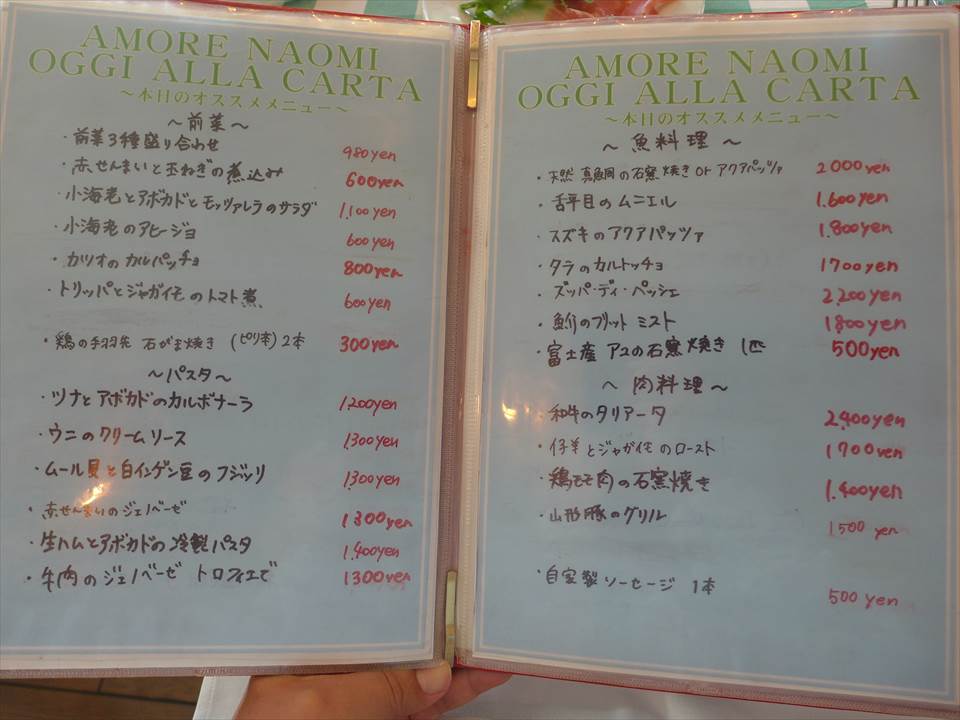 AMORE NAOMI
OGGI ALLA CARTA
～本日のオススメメニュー～
～前菜～
・前菜3種盛り合わせ 980yen
・赤せんまいと玉ねぎの煮込み 600yen
・小海老とアボカドとモッツァレラのサラダ 1,100yen
・小海老のアヒージョ 600yen
・カツオのカルパッチョ 800yen
・トリッパとジャガイモのトマト煮 600yen
・鶏の手羽先 石がま焼き (ピリ辛) 2本 300yen
～パスタ～
・ツナとアボカドのカルボナーラ 1,200yen
・ウニのクリームソース 1,300yen
・ムール貝と白インゲン豆のフジッリ 1,300yen
・赤せんまいのジェノベーゼ 1300yen
・生ハムとアボカドの冷製パスタ 1,400yen
・牛肉のジェノベーゼ トロフィエで 1300yen
AMORE NAOMI
OGGI ALLA CARTA
～本日のオススメメニュー～
～魚料理～
・天然真鯛の石窯焼きorアクアパッツァ 2000yen
・舌平目のムニエル 1.600yen
・スズキのアクアパッツァ 1.800yen
・タラのカルトッチョ 1700yen
・ズッパ・ディ・ペッシェ 2,200yen
・魚介のフリット ミスト 1800yen
・富士産 アユの石窯焼き 1匹 500yen
～肉料理～
・和牛のタリアータ 2,400yen
・仔羊とジャガイモのロースト 1700yen
・鶏モモ肉の石窯焼き 1,400yen
・山形豚のグリル 1500 yen
・自家製ソーセージ 1本 500 yen